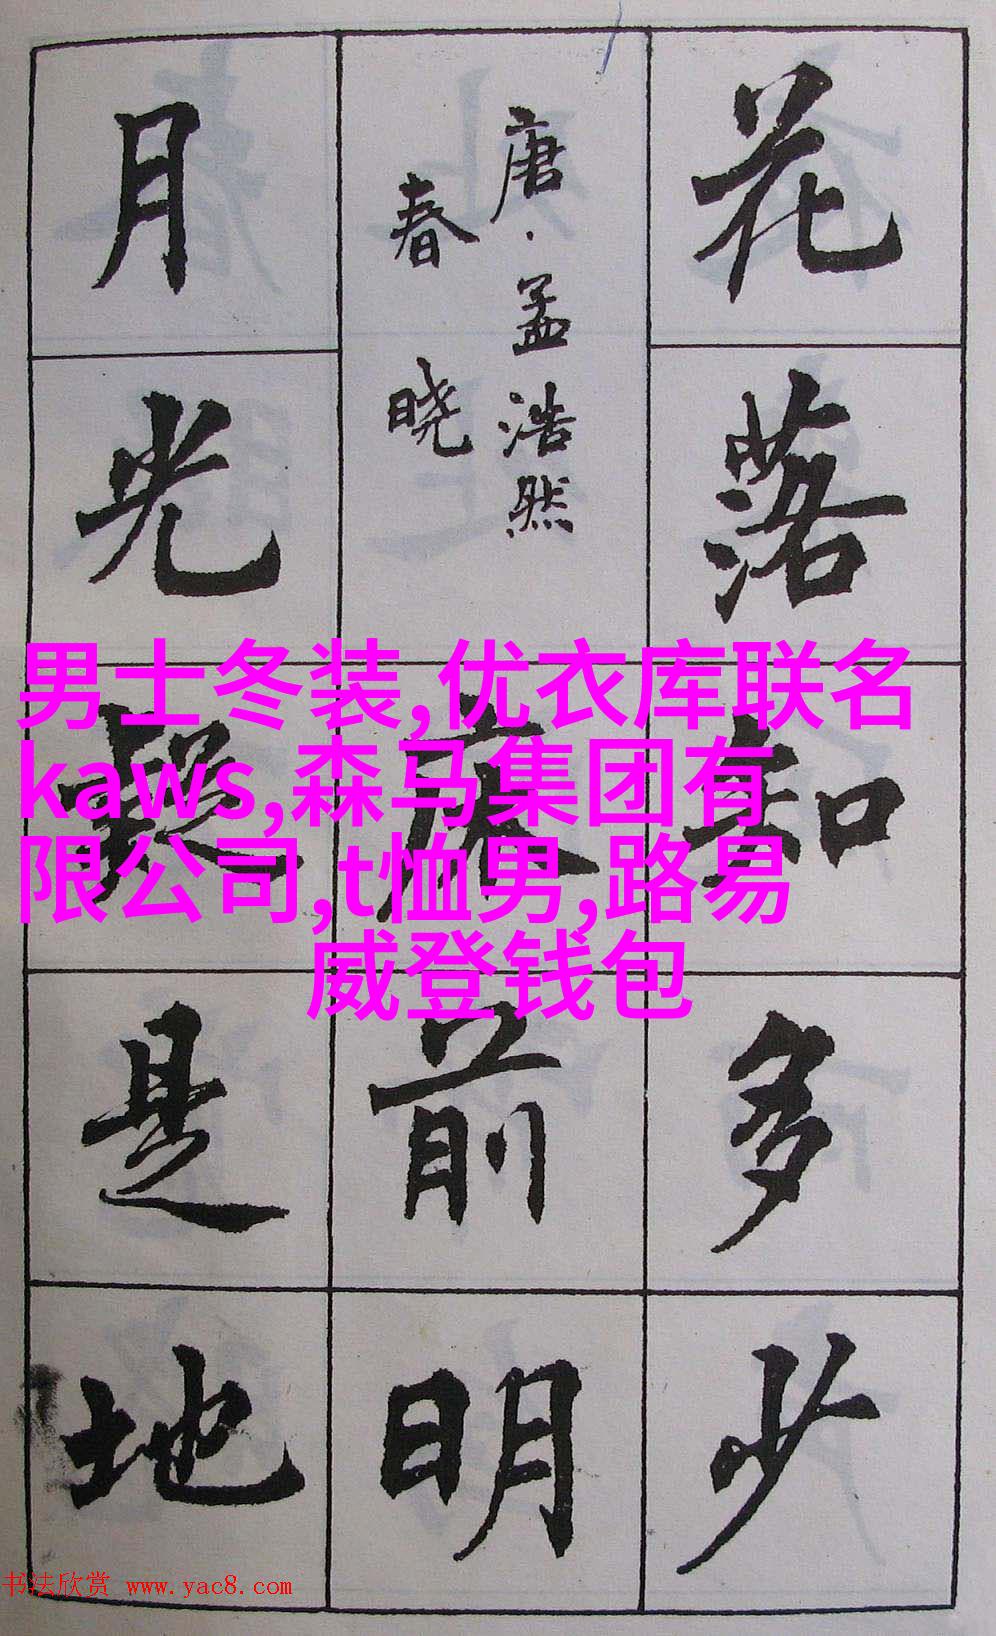 花落知多少
唐·孟浩然
春晓
床前明
月光疑是地
男士冬装,优衣库联名
kaws,森马集团有
限公司,t恤男,路易
威登钱包
书法欣赏 www.yac8.com